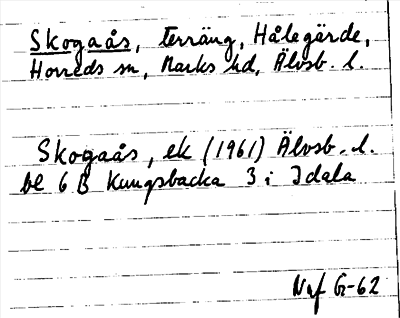 Skogaås, terräng, Hålegärde,
Horreds sn, Marks hd, Älvsb. l.
Skogaås, ek (1961) Älvsb. l.
bl 6 B Kungsbacka 3 i Idala
Naf G-62